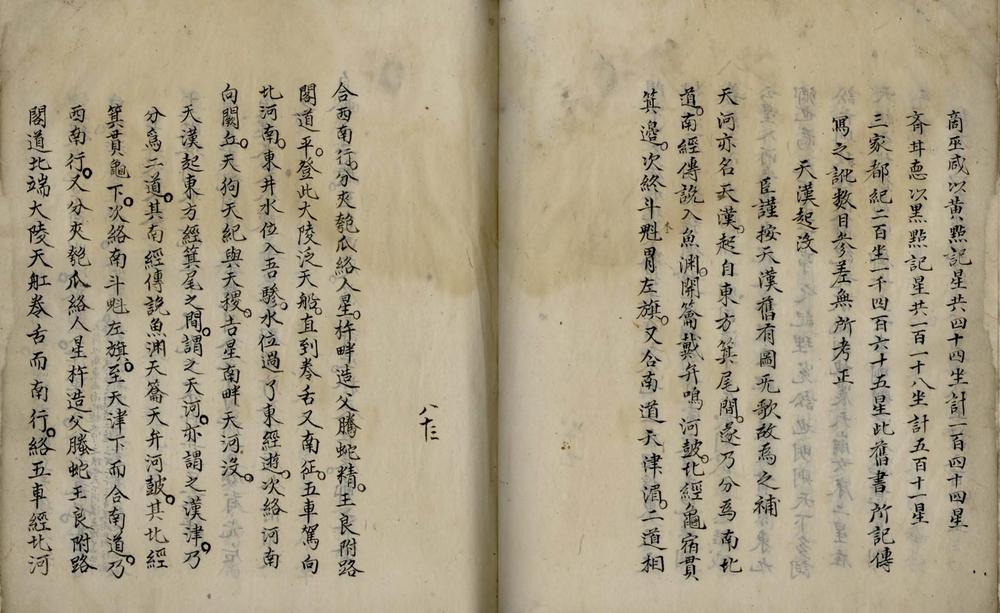 商巫咸以黄點記星共四十四坐計一百四十四星
齊井悳以黒點記星共一百一十八坐計五百十一星
三家都紀二百坐一千四百六十五星此舊書所記傳
寫之訛数目參差無所考正
天漢起没
臣謹按天漢舊有圖无歌故爲之補
天河亦名天漢。起自東方箕尾間。遂乃分爲南北
道。南經傳説入魚渊。開籥戴弁鳴河皷。北經龜宿貫
箕邉。次終斗魁冐左旗。又合南道天津湄。二道相
合西南行。分夾匏瓜絡人星。杵畔造父騰蛇精。王良附路
閣道平。登此大陵泛天舩。直到卷舌又南征。五車駕向
北河南。東井水位入吾驂。水位過了東經遊。次絡河南
向闕丘。天狗天紀與天稷。七星南畔天河没。
天漢起東方經箕尾之間。謂之天河。亦謂之漢津。乃
分爲二道。其南經傳説魚渊天籥天弁河皷。其北經
箕貫龜下。次絡南斗魁左旗。至天津下而合南道。乃
西南行。又分夾匏瓜絡人星杵造父螣蛇王良附路
閣道北端大陵天舡卷舌而南行。絡五車經北河
八十三